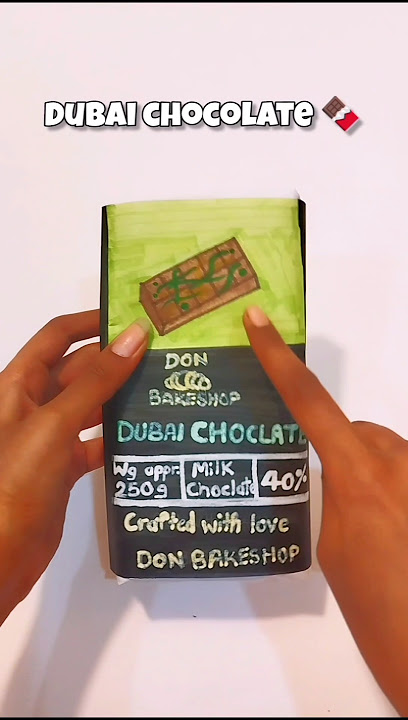 DUBAI CHOCOLATE 🍫
DON
BAKESHOP
DUBAI CHOCLATE
Wg appr. Milk 40%
250g Choclate
Crafted with love
DON BAKESHOP